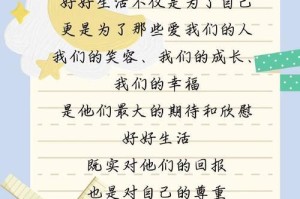 好好生活不仅是为了自己
更是为了那些爱我们的人
我们的笑容、我们的成长、
我们的幸福
是他们最大的期待和欣慰
好好生活
既实对他们的回报
也是对自己的尊重